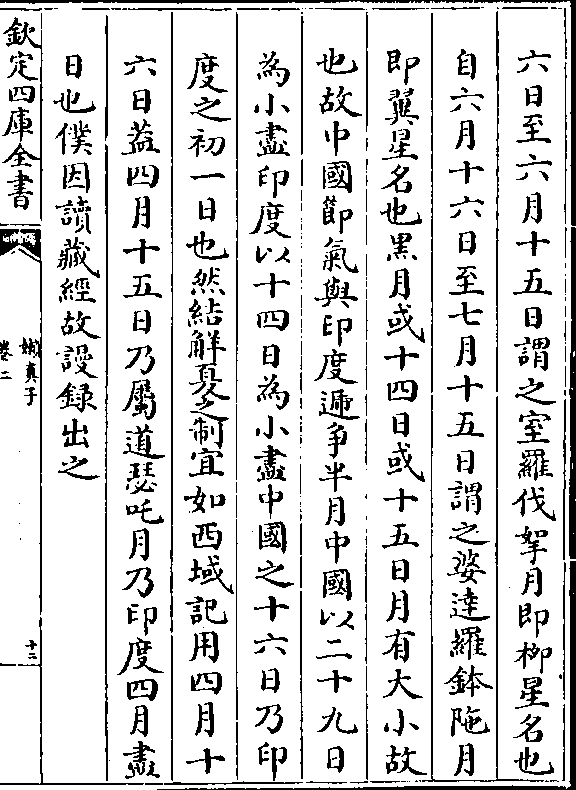 六日至六月十五日謂之室羅伐拏月即柳星名也
自六月十六日至七月十五日謂之婆達羅鉢陁月
即翼星名也黑月或十四日或十五日月有大小故
也故中國節氣與印度遞争半月中國以二十九日
為小盡印度以十四日為小盡中國之十六日乃印
度之初一日也然結解夏之制宜如西域記用四月十
六日葢四月十五日乃屬道瑟吒月乃印度四月盡
日也僕因讀藏經故謾録出之
欽定四庫全書
嬾真子
卷二
十二